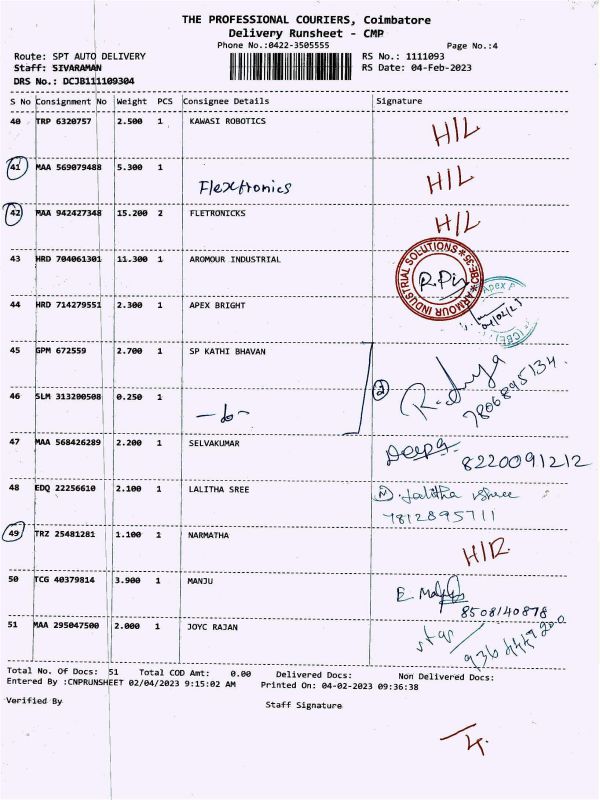 THE PROFESSIONAL COURIERS, Coimbatore
Delivery Runsheet - CMP
Phone No.:0422-3505555 Page No.:4
Route: SPT AUTO DELIVERY RS No.: 1111093
Staff: SIVARAMAN RS Date: 04-Feb-2023
DRS No.: DCJB111109304
S No Consignment No Weight PCS Consignee Details Signature
40 TRP 6320757 2.500 1 KAWASI ROBOTICS H/L
41 MAA 569079488 5.300 1 H/L
Flextronics
42 MAA 942427348 15.200 2 FLETRONICKS H/L
43 HRD 704061301 11.300 1 AROMOUR INDUSTRIAL
ARMOUR INDUSTRIAL SOLUTIONS * CBE-35 *
44 HRD 714279551 2.300 1 APEX BRIGHT
Apex
04/02/23
45 GPM 672559 2.700 1 SP KATHI BHAVAN
46 SLM 313200508 0.250 1 2 7806895134
47 MAA 568426289 2.200 1 SELVAKUMAR Deepa
8220091212
48 EDQ 22256610 2.100 1 LALITHA SREE
7812895711
49 TRZ 25481281 1.100 1 NARMATHA
50 TCG 40379814 3.900 1 MANJU
8508140878
51 MAA 295047500 2.000 1 JOYC RAJAN star
Total No. Of Docs: 51 Total COD Amt: 0.00 Delivered Docs: Non Delivered Docs:
Entered By :CNPRUNSHEET 02/04/2023 9:15:02 AM Printed On: 04-02-2023 09:36:38
Verified By Staff Signature